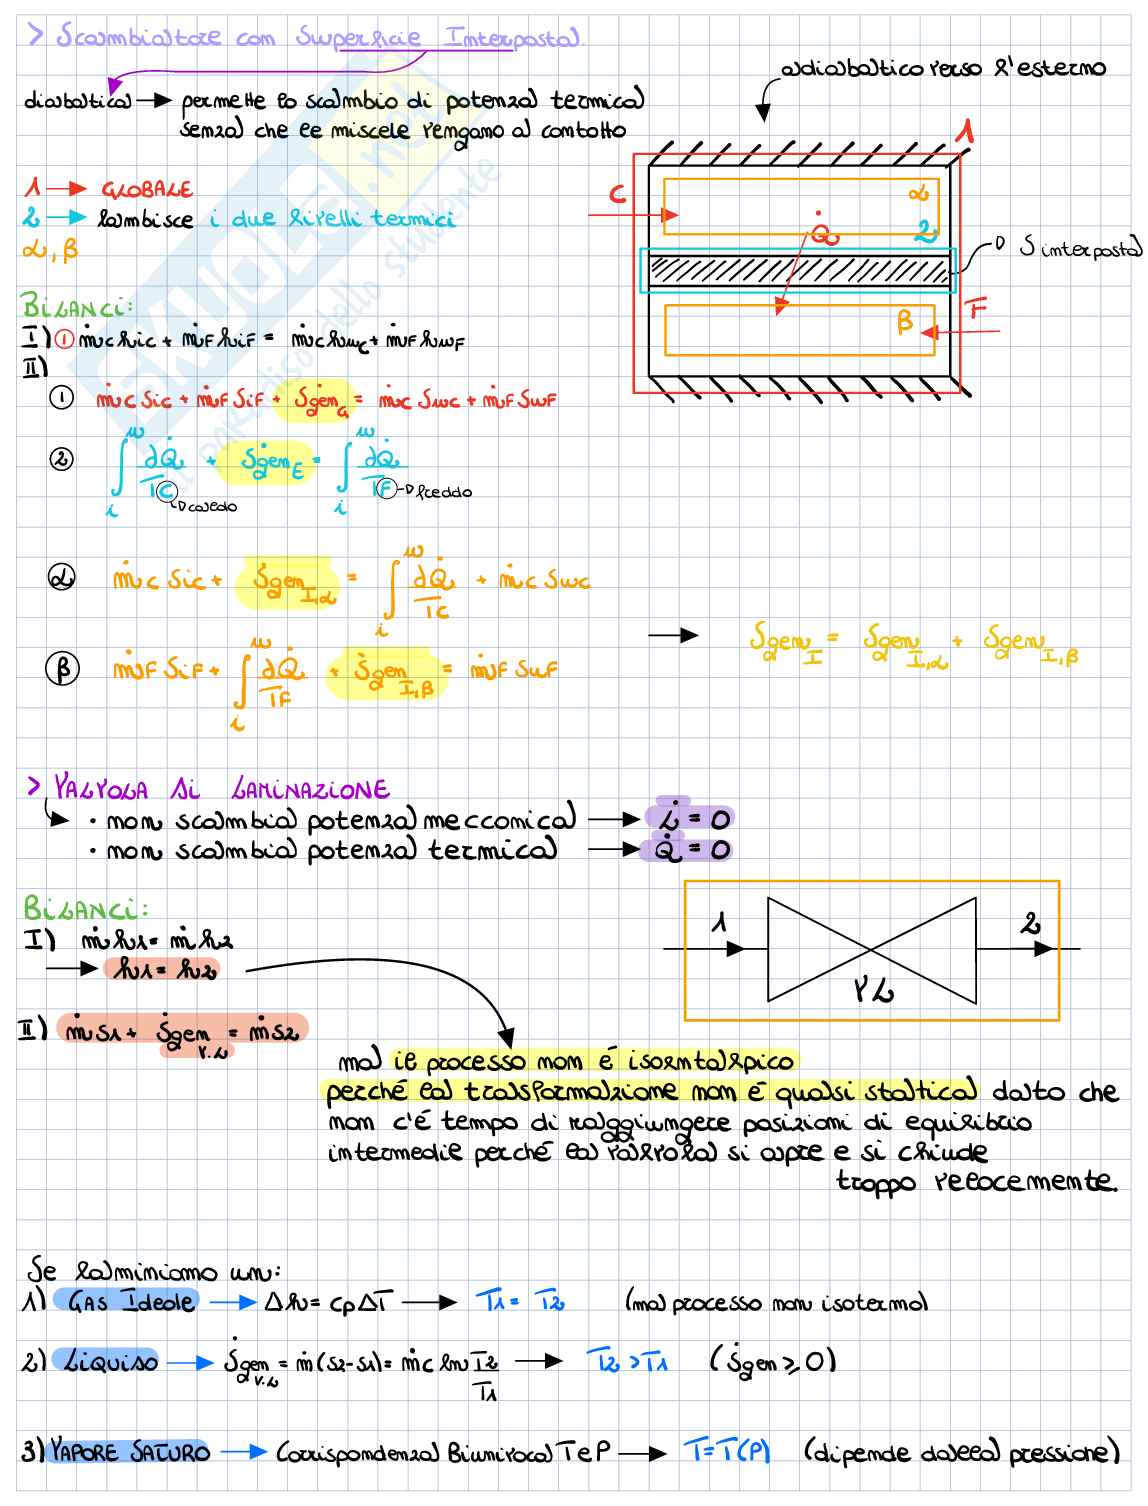 > Scambiatore con Superficie Interposta
adiabatico verso l'esterno
diabatica → permette lo scambio di potenza termica
senza che le miscele vengano a contatto
1
1 → GLOBALE
C
α
2 → lambisce i due livelli termici
Q̇
2
α, β
S interposta
BILANCI:
β
F
I) ① ṁc hic + ṁF hiF = ṁc huc + ṁF huF
II)
① ṁc Sic + ṁF SiF + Ṡgen G = ṁc Suc + ṁF SuF
② ∫ᵢᵘ ∂Q̇/TC + Ṡgen E = ∫ᵢᵘ ∂Q̇/TF
caldo
freddo
α ṁc Sic + Ṡgen I,α = ∫ᵢᵘ ∂Q̇/TC + ṁc Suc
→ Sgen I = Sgen I,α + Sgen I,β
β ṁF SiF + ∫ᵢᵘ ∂Q̇/TF + Ṡgen I,β = ṁF SuF
> VALVOLA di LAMINAZIONE
• non scambia potenza meccanica → L̇ = 0
• non scambia potenza termica → Q̇ = 0
BILANCI:
1
2
VL
I) ṁh1 = ṁh2
→ h1 = h2
II) ṁs1 + Ṡgen V.L = ṁs2
ma il processo non é isoentalpico
perché la trasformazione non é quasi statica dato che
non c'é tempo di raggiungere posizioni di equilibrio
intermedie perché la valvola si apre e si chiude
troppo velocemente.
Se laminiamo un:
1) GAS Ideale → Δh = cpΔT → T1 = T2 (ma processo non isotermo)
2) LIQUIDO → Ṡgen V.L = ṁ(s2-s1) = ṁc ln T2/T1 → T2 > T1 (Ṡgen ⩾ 0)
3) VAPORE SATURO → Corrispondenza Biunivoca T e P → T = T(P) (dipende dalla pressione)